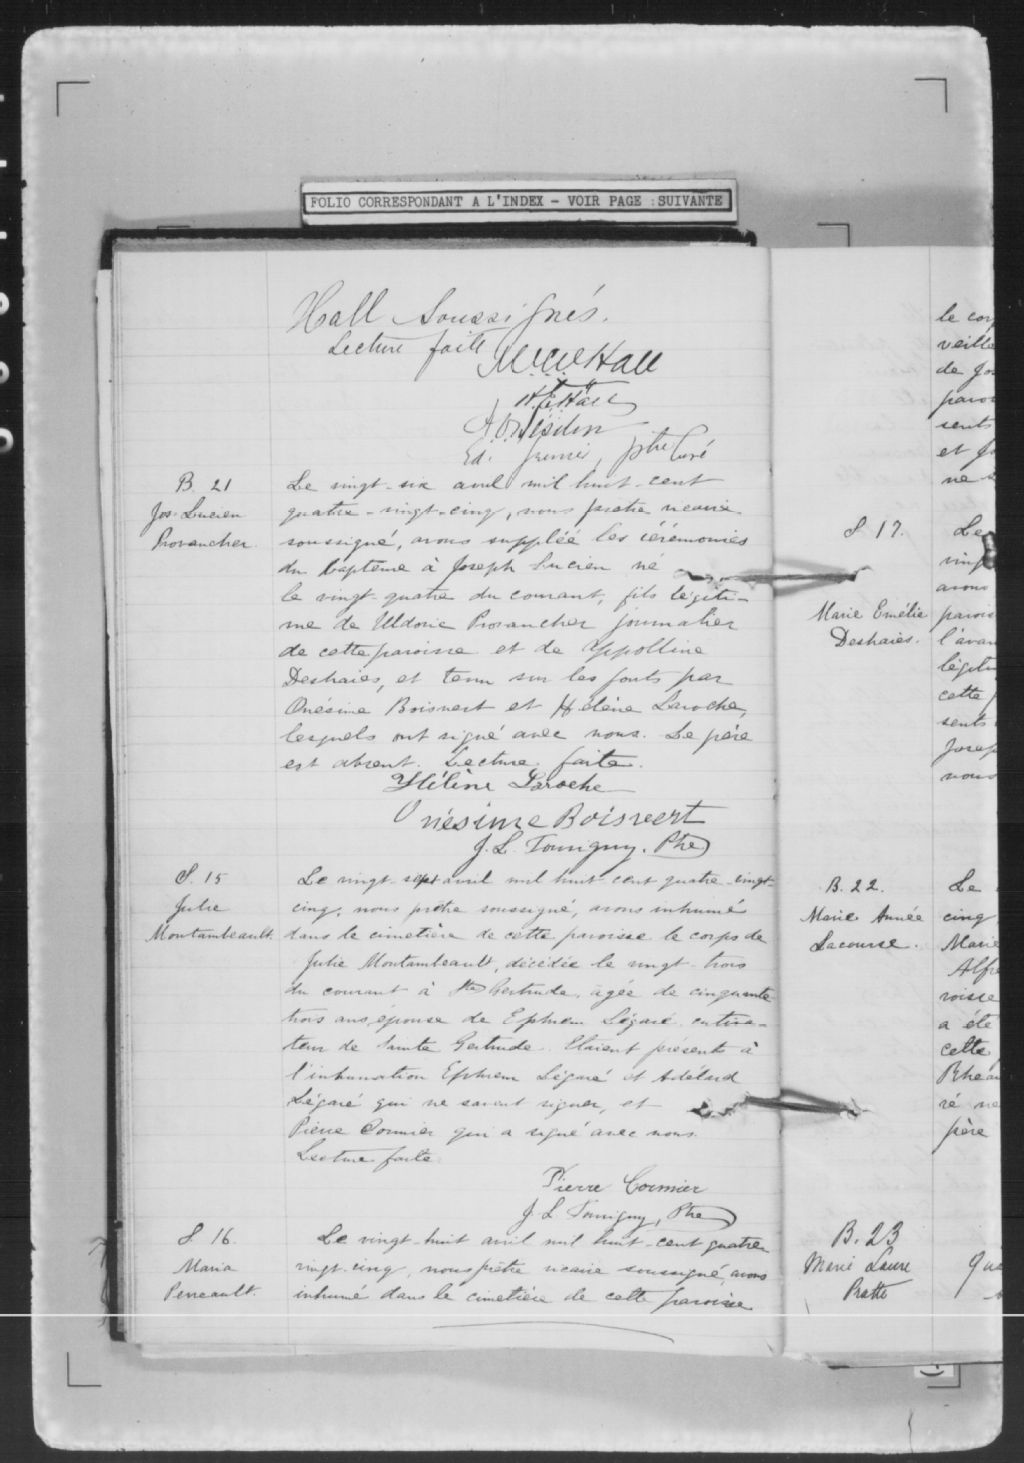 FOLIO CORRESPONDANT A L'INDEX - VOIR PAGE :SUIVANTE
Hall Soussignés.
Lecture faite
B. 21
Jos-Lucien
Provancher.
Le vingt-six avril mil huit-cent
quatre-vingt-cinq, nous prêtre vicaire
soussigné, avons suppléé les cérémonies
du baptême à Joseph Lucien né
le vingt-quatre du courant, fils légiti-
me de Uldoric Provancher journalier
de cette paroisse et de Appolline
Deshaies, et tenu sur les fonts par
Onésime Boisvert et Hélène Laroche,
lesquels ont signé avec nous. Le père
est absent. Lecture faite.
Hélène Laroche
Onésime Boisvert
J. L. Tourigny. Ptre
S. 15
Julie
Montambeault.
Le vingt sept avril mil huit-cent quatre-vingt-
cinq, nous prêtre soussigné, avons inhumé
dans le cimetière de cette paroisse le corps de
Julie Montambeault, décédée le vingt-trois
du courant à Ste Gertrude, agée de cinquante-
trois ans, épouse de Ephrem Légaré cultiva-
teur de Sainte Gertrude. Étaient présents à
l'inhumation Ephrem Légaré et Adélard
Légaré qui ne savent signer, et
Pierre Cormier qui a signé avec nous.
Lecture faite
Pierre Cormier
J. L. Tourigny, Ptre
S. 16.
Maria
Perreault.
Le vingt-huit avril mil huit-cent quatre
vingt-cinq, nous prêtre vicaire soussigné, avons
inhumé dans le cimetière de cette paroisse
le cor
veille
de Jo
paroi
sents
et Jo
ne s
S 17.
Marie Emélie
Deshaies.
Le
ving
avons
parois
l'avan
légiti
cette p
sents
Josep
nous
B. 22.
Marie Année
Lacourse.
Le
cinq
Marie
Alfre
roisse
a été
cette
Rheau
ré ne
père
B. 23
Marie Laure
Pratte